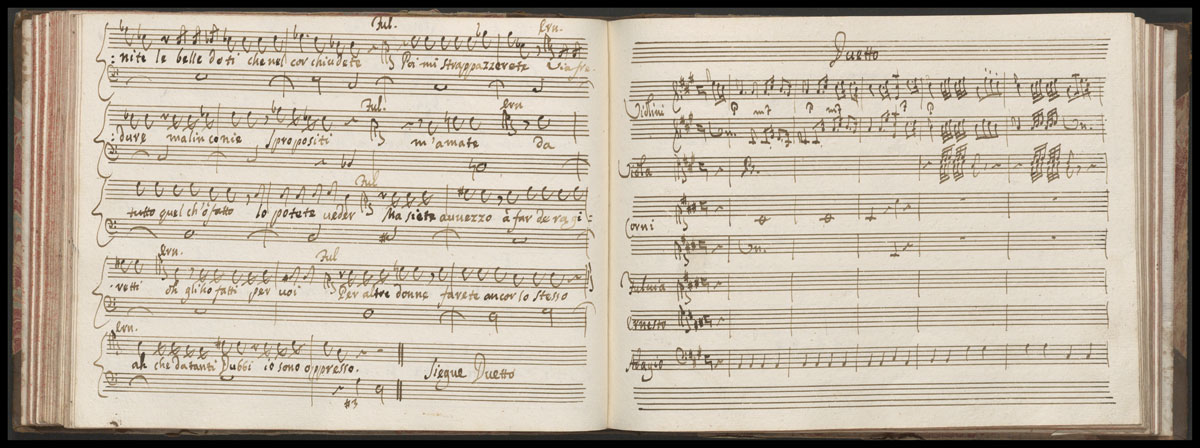 Ful. Ern.
:nite le belle doti che nel cor chiudete Poi mi strappazzerete
Ful. Ern
:dure malinconie spropositi m'amate da
Ful
tutto quel ch'ò fatto lo potete veder Ma siete auuezzo à far de ragi:
Ern. Ful
:retti oh gli ho fatti per voi Per altre donne farete ancor lo stesso
Ern.
ah che da tanti Dubbi io sono oppresso.
Siegue Duetto
#3
Duetto
Violini
p mf p mf p p
Un. Un.
Viola
B.
Corni
Un.
Fulvia
Ernesto
Adagio